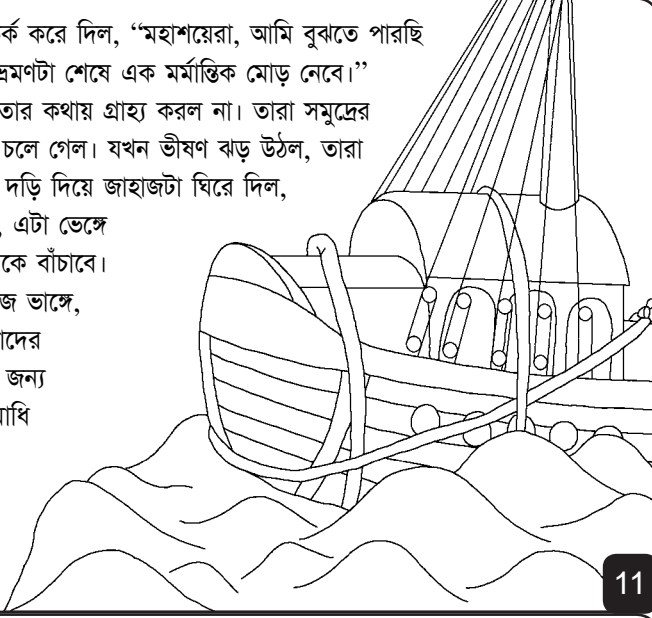 র্ক করে দিল, “মহাশয়েরা, আমি বুঝতে পারছি
ভ্রমণটা শেষে এক মর্মান্তিক মোড় নেবে।”
তার কথায় গ্রাহ্য করল না। তারা সমুদ্রের
চলে গেল। যখন ভীষণ ঝড় উঠল, তারা
দড়ি দিয়ে জাহাজটা ঘিরে দিল,
, এটা ভেঙ্গে
কে বাঁচাবে।
জ ভাঙ্গে,
াদের
জন্য
াধি
11